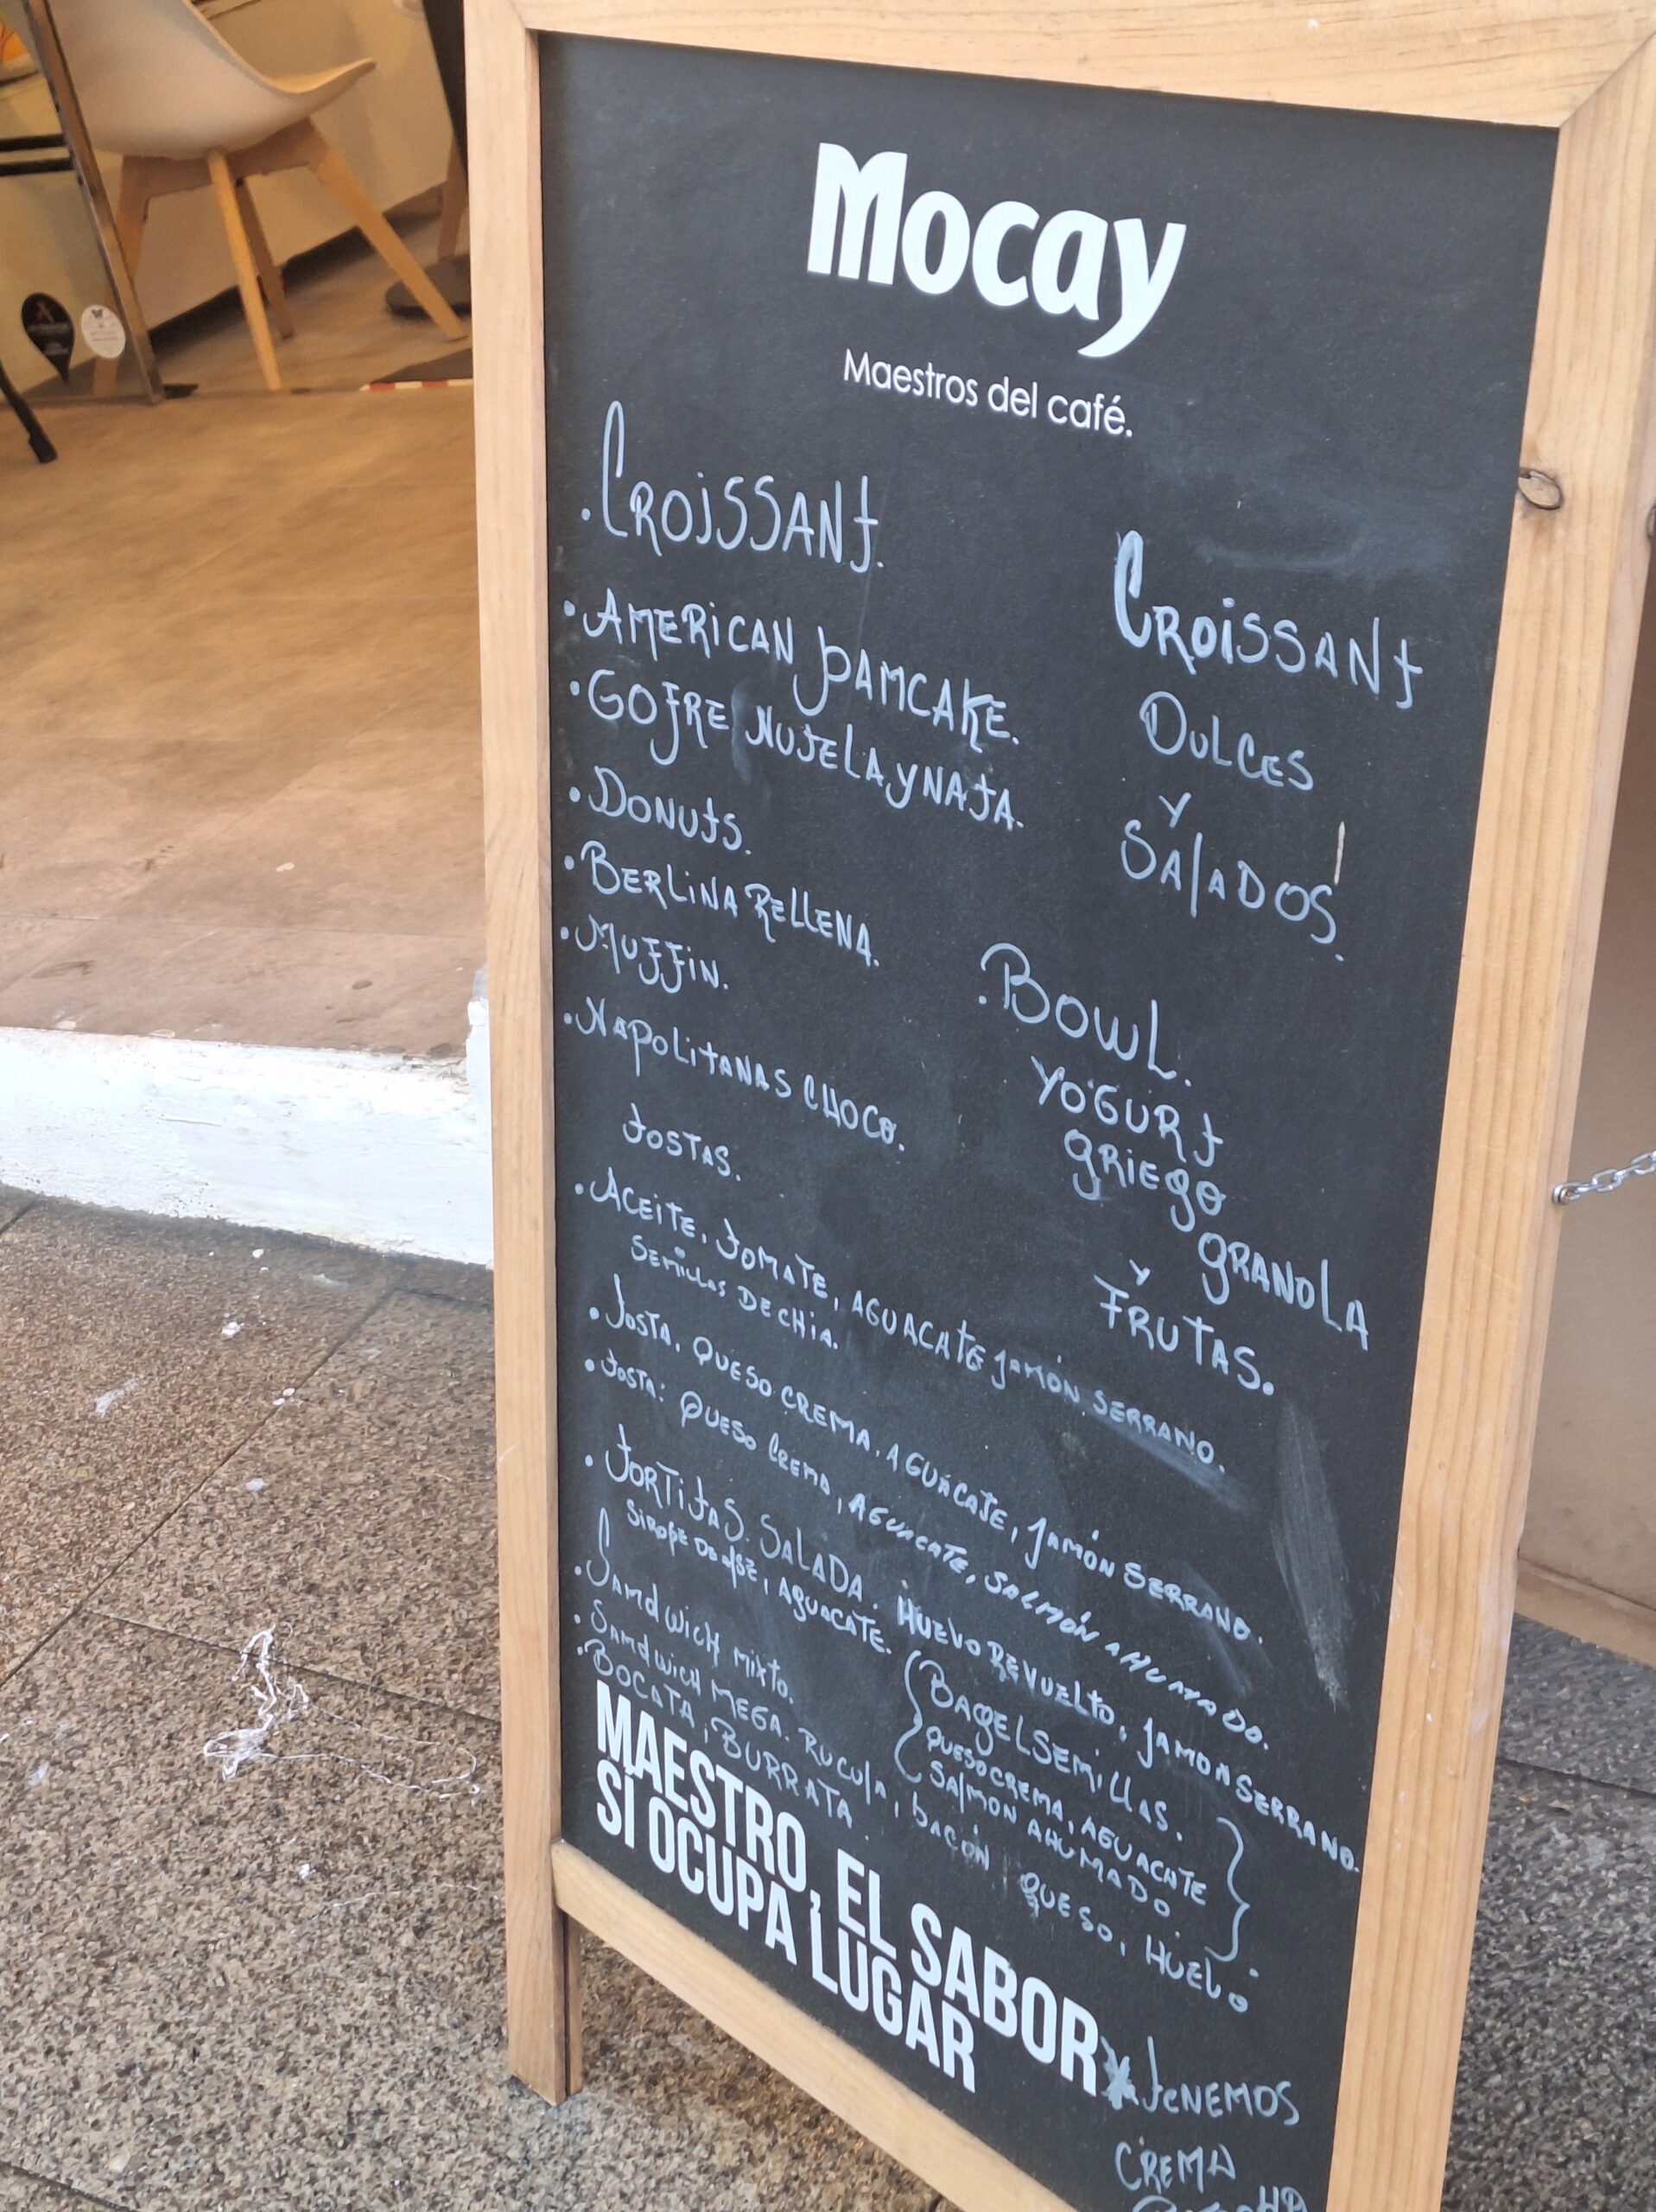 Mocay
Maestros del café.
.CROISSANT.
•AMERICAN PAMCAKE.
•GOFRE NUTELA Y NATA.
•DONUTS.
•BERLINA RELLENA.
•MUFFIN.
•NAPOLITANAS CHOCO.
CROISSANT
DULCES
Y
SALADOS.
.BOWL.
YOGURT
GRIEGO
GRANOLA
Y
FRUTAS.
TOSTAS.
•ACEITE, TOMATE, AGUACATE JAMÓN SERRANO.
SEMILLAS DE CHIA.
•TOSTA. QUESO CREMA. AGUACATE, JAMÓN SERRANO.
•TOSTA: QUESO CREMA, AGUACATE, SALMÓN AHUMADO.
•TORTITAS SALADA. HUEVO REVUELTO, JAMON SERRANO.
SIROPE, AGUACATE.
•SAMDWICH MIXTO.
•SAMDWICH MEGA. RUCULA, BACÓN QUESO, HUEVO
•BOCATA, BURRATA.
BAGEL SEMILLAS.
QUESO CREMA, AGUACATE
SALMON AHUMADO.
MAESTRO, EL SABOR
SÍ OCUPA LUGAR
TENEMOS
CREMA